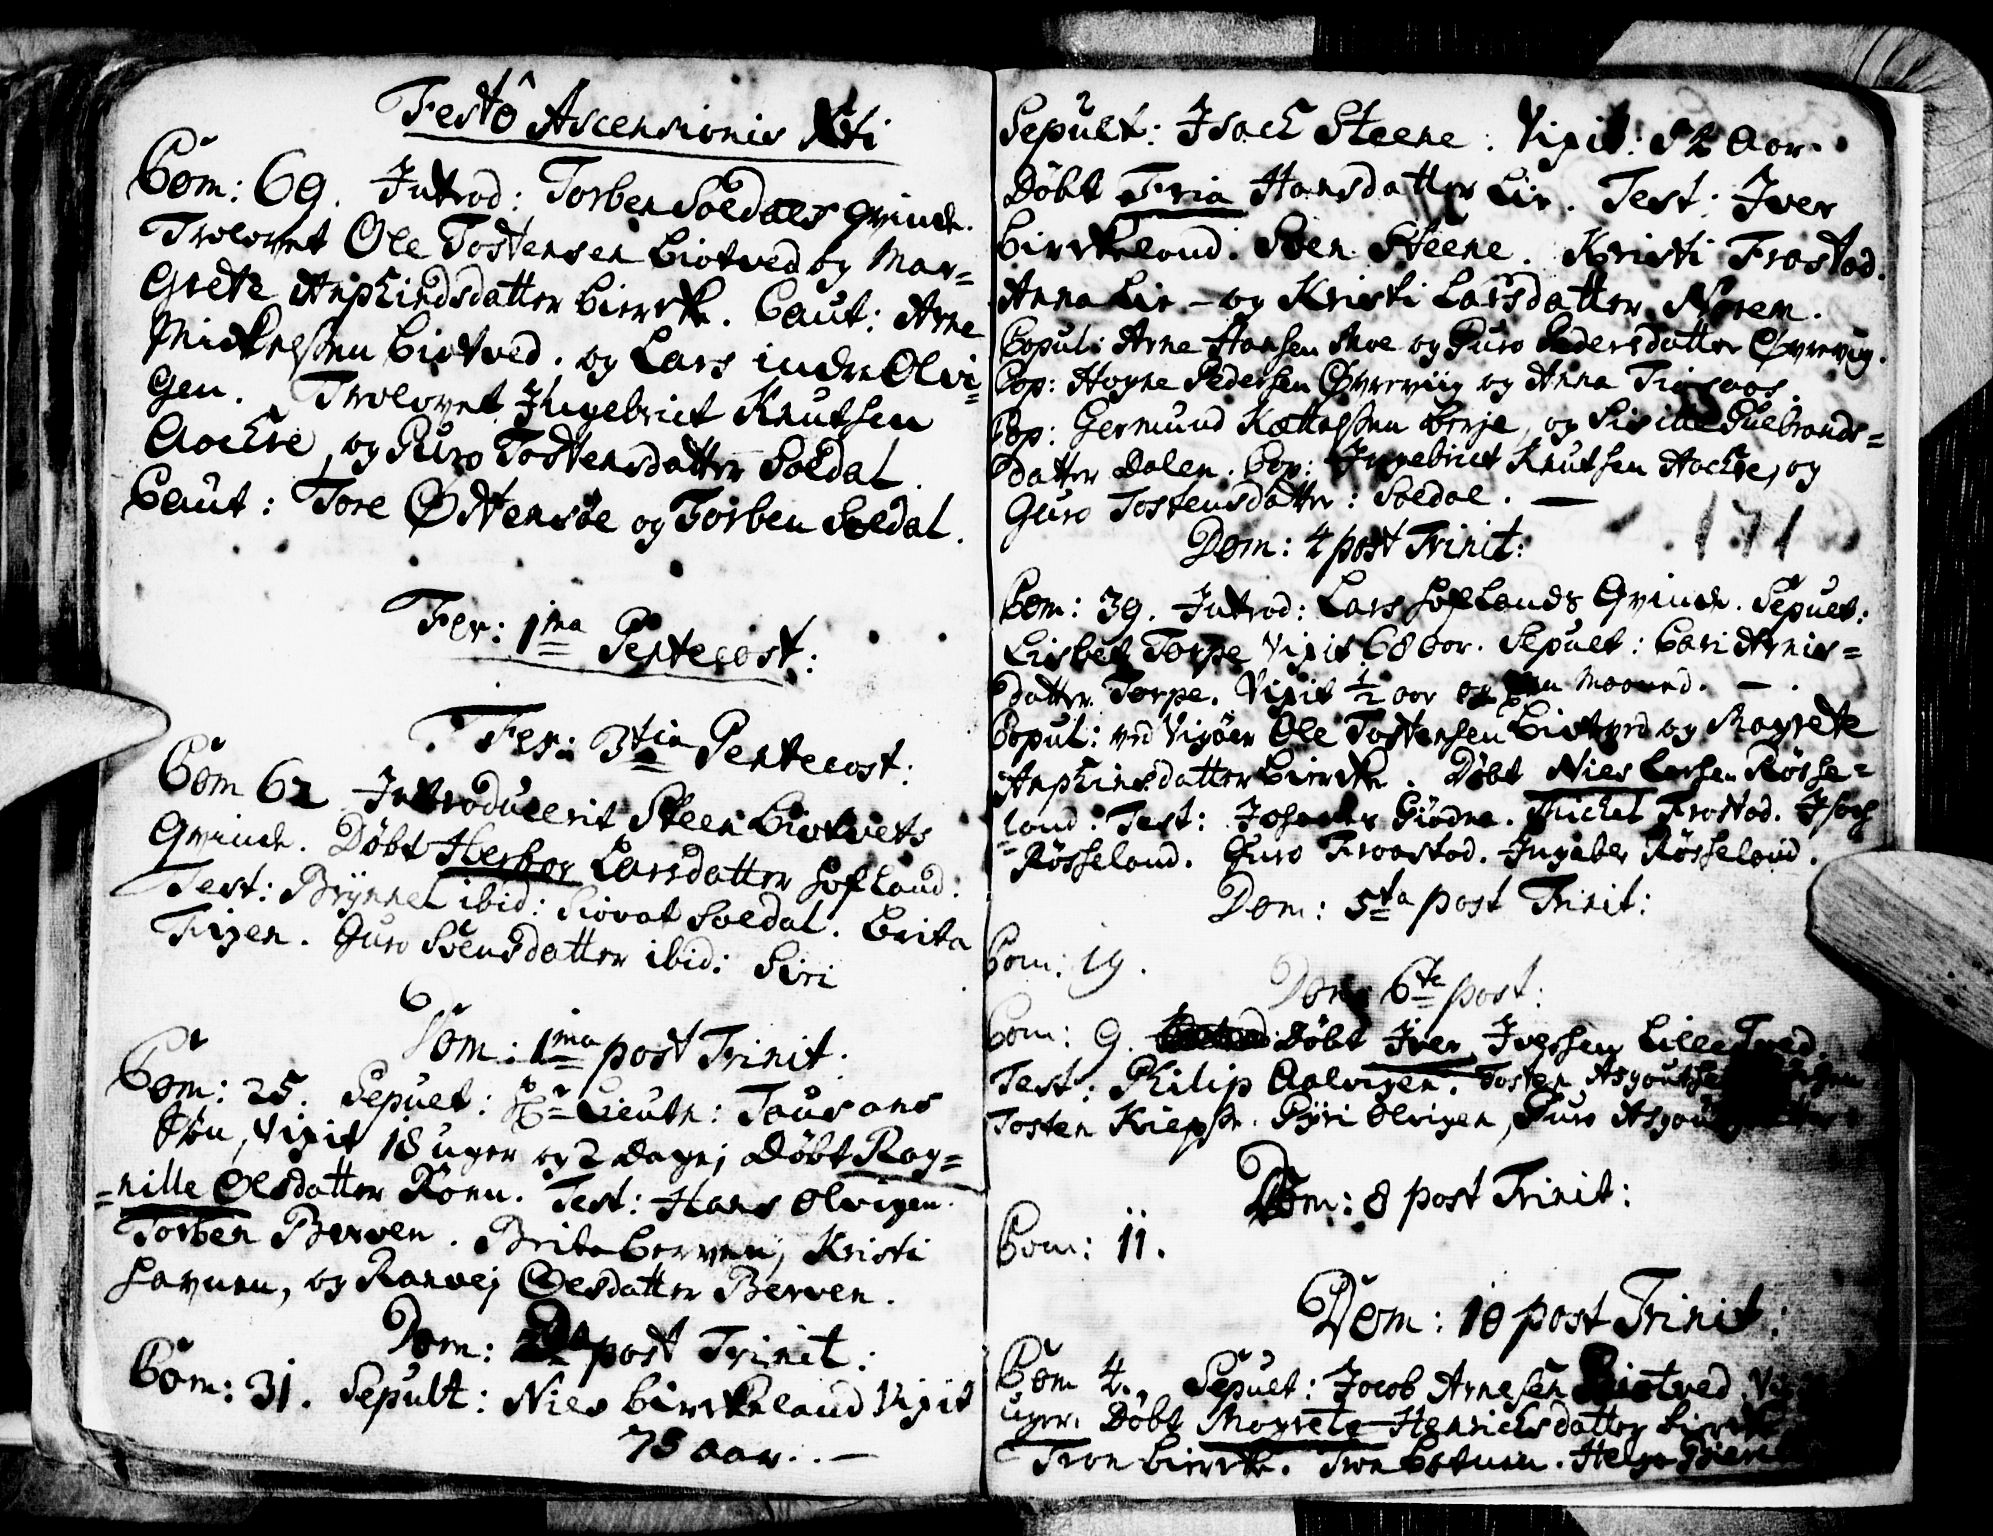 Festô Ascensionis Xti
Com: 69. Introd: Torben Soldals Qvinde.
Trolovet Ole Tostensen Biotved og Mar-
Grete Anphindsdatter Birrke. Caut: Arne
Mickelssen Biotved. og Lars indre Olvi-
gen. Trolovet Ingebrict Knutsen
Aachre, og Guro Tostensdatter Soldal.
Caut: Tore Østensøe og Torben Soldal.
Fer: 1ma Pentecost:
Fer: 3tia Pentecost:
Com 62 Introducerit Steen Biotvets
Qvinde. Døbt Herbor Larsdatter Hofland:
Test: Brÿnnel ibid: Siovat Soldal. Brita
Tvigen. Guro Svensdatter ibid: Siri
Dom: 1ma post Trinit:
Com: 25. Sepult: Hr Lieutn: Tausans
Søn, Vixit 18 uger og 2 dage; Døbt Rag-
=nille Olsdatter Rønn. Test: Hans Olvigen.
Torben Berven. Brita Berven, Kristi
Havnen, og Ranvej Olsdatter Berven.
Dom: 2da post Trinit:
Com: 31. Sepult: Niels Birrkeland Vixit
75 aar. —
Sepult: Isach Steene. Vixit: 52 Aar.
Døbt Fria Hansdatter Lie. Test: Iver
Birrkeland. Sven Steene. Kristi Frostad.
Anna Lie - og Kristi Larsdatter Noren.
Copul: Arne Hansen Moe og Guro Pedersdatter Øvrevig.
Cop: Hogne Pedersen Øvreviig og Anna Tiosaas.
Cop: Germund Kættelssen Berje, og Sisille Gulbrands=
datter Dalen. Cop: Ingebrict Knutsen Aachre, og
Guro Tostensdatter: Soldal. —
171
Dom: 4 post Trinit:
Com: 39. Introd: Lars Hoflands Qvinde. Sepult:
Lisbet Torpe Vixit 68 aar. Sepult: Cari Arnis=
datter Torpe. Vixit ½ aar og en Maaned. —
Copul: ved Vigøer Ole Tostensen Biotved og Magrete
Anphinsdatter Birrke. Døbt Niels Larsen Røsse=
=land. Test: Johannes Giødne. Michel Frostad. Isach
Røsseland. Guro Froastad. Ingeber Røsseland.
Dom: 5ta post Trinit:
Com: 19.
Dom 6te post:
Com: 9. Døbt Iver Iversen Lille Tved.
Test: Philip Aalvigen. Tosten Asgoutsen
Tosten Kieps. Gÿri Olvigen, Guro
Dom: 8 post Trinit:
Com: 11.
Dom: 10 post Trinit:
Com 4. Sepult: Jacob Arnesen Biotved
uger. Døbt Magrete Henrichsdatter Birrke
Tron Birrke. Helge